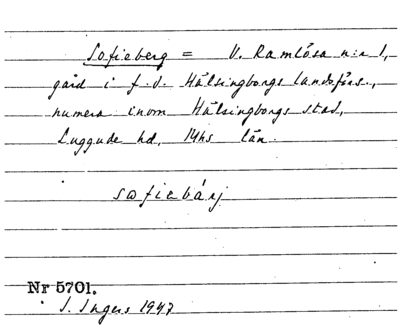 Sofieberg = V. Ramlösa n:r 1,
gård i f.d. Hälsingborgs landsförs.,
numera inom Hälsingborgs stad,
Luggude hd, Mhs län.
sofiebárj
Nr 5701.
I. Ingers 1947